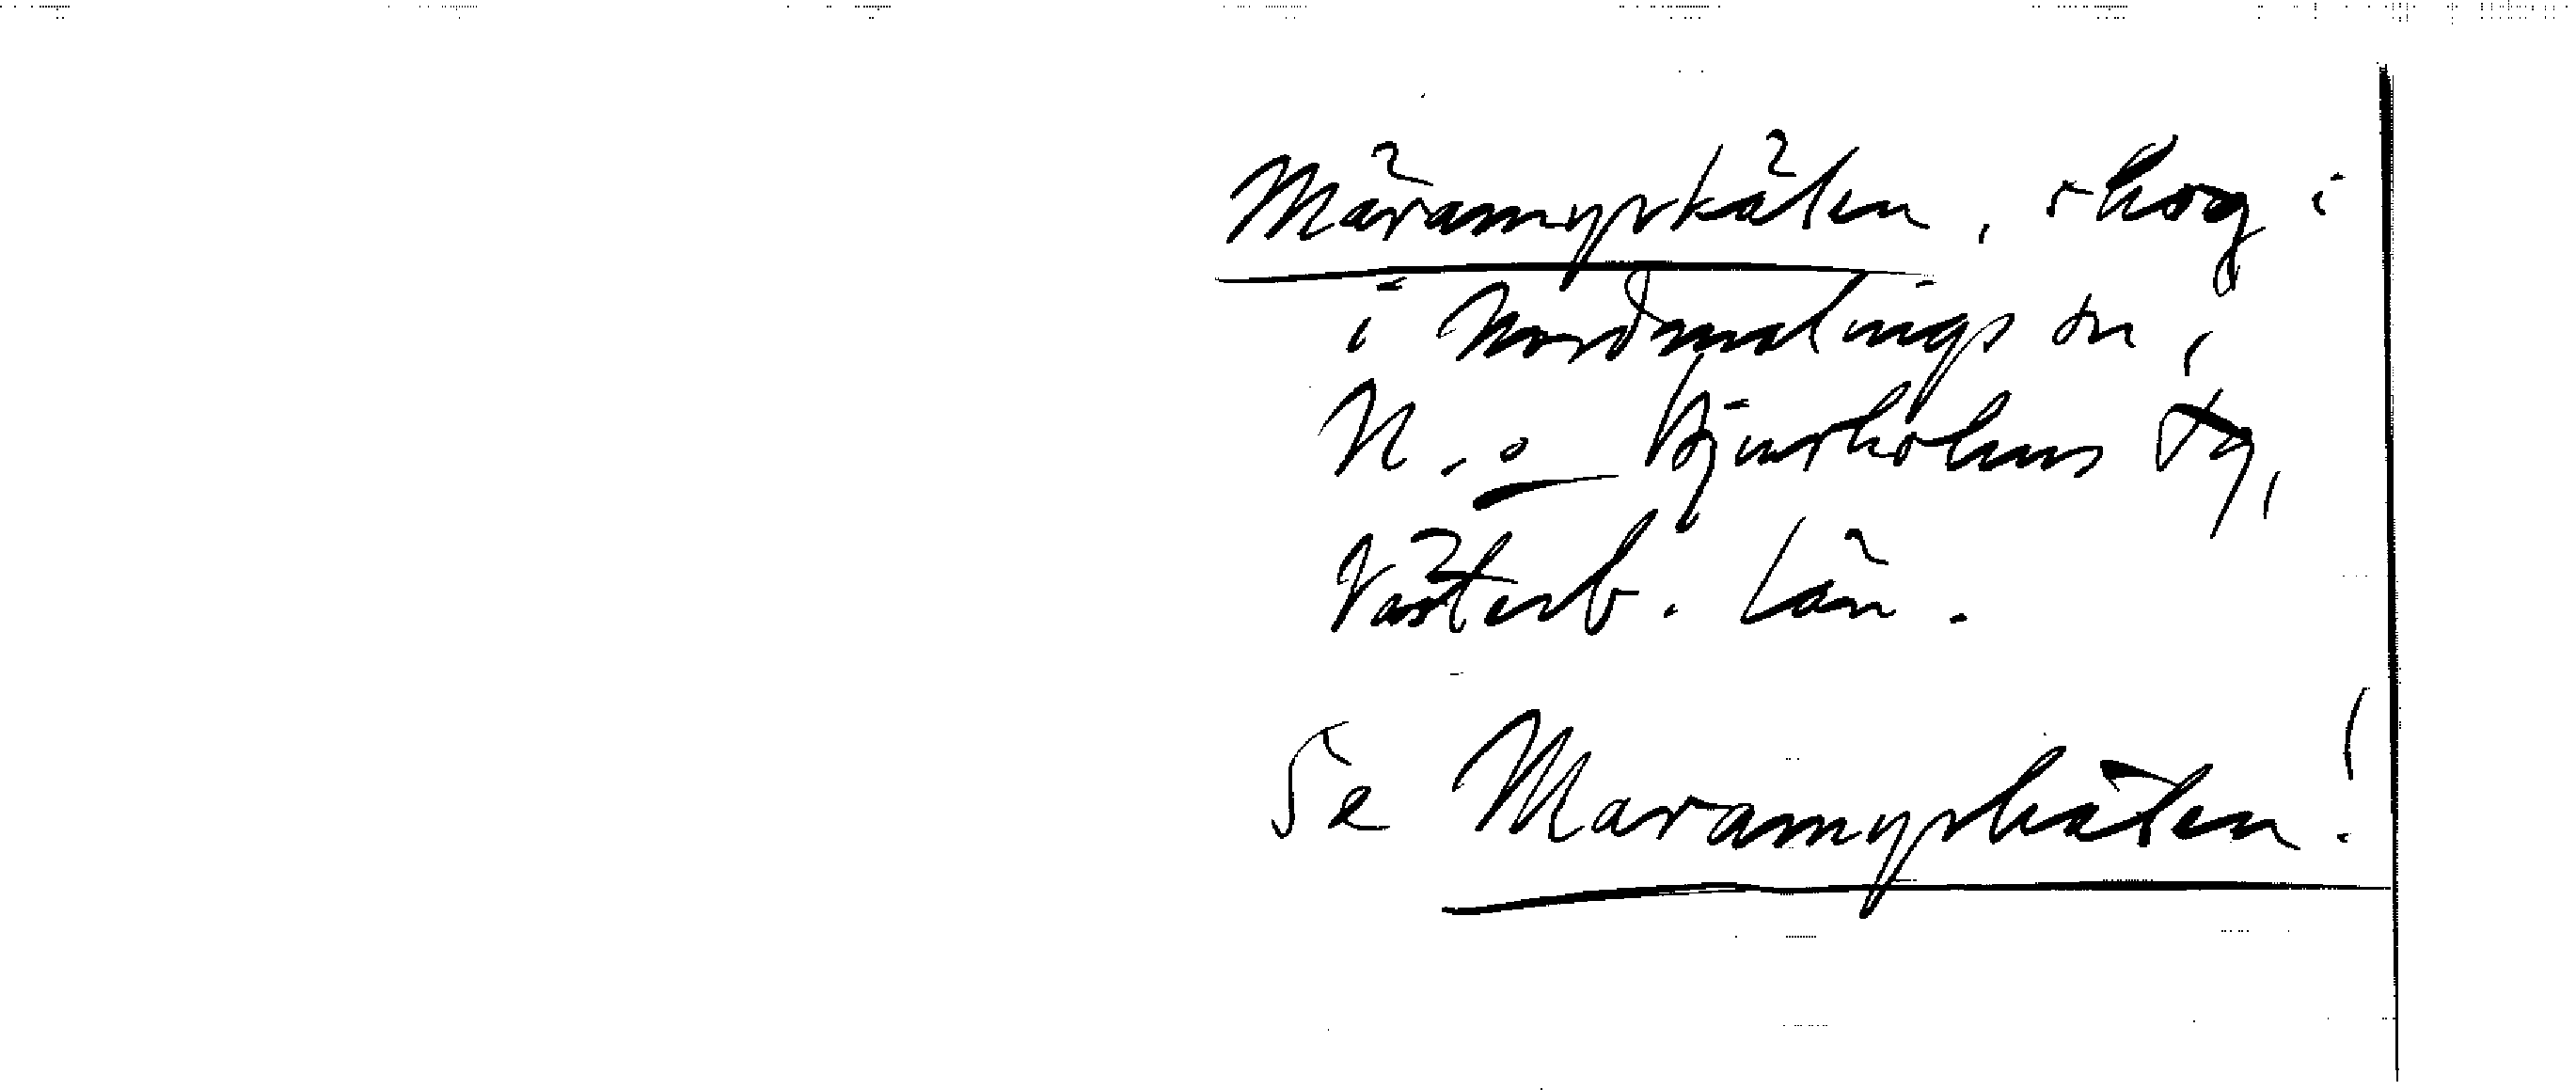 Märamyrkälen, skog i
i Nordmalings sn,
N. o Bjurholms tg,
Västerb. län.
Se Maramyrkälen!